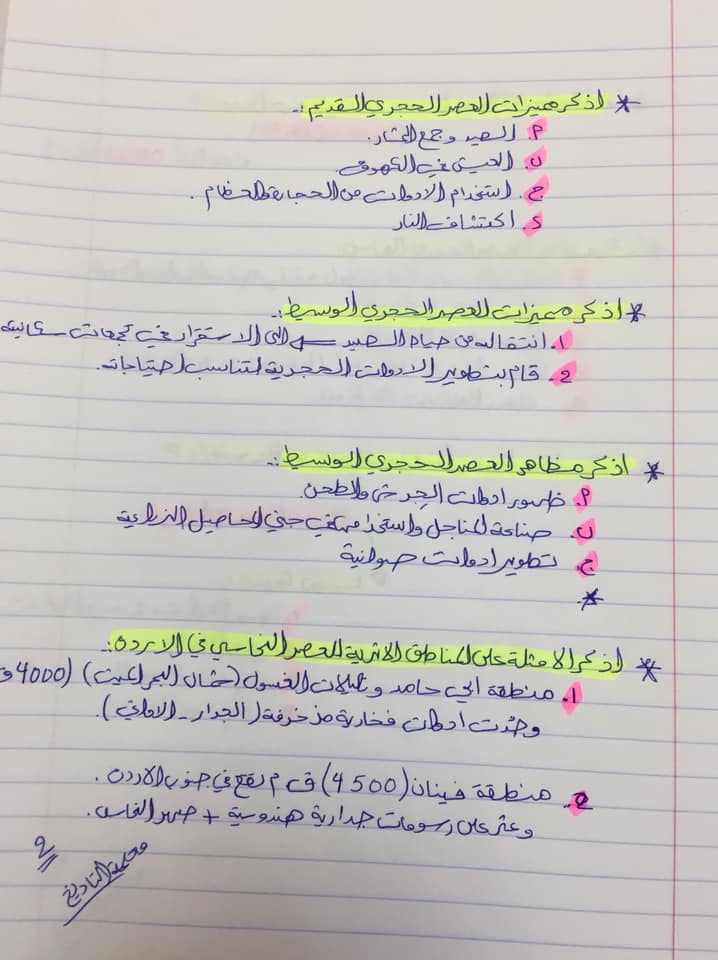 * اذكر مميزات العصر الحجري القديم :-
أ. الصيد وجمع الثمار.
ب. العيش في الكهوف
ج. استخدام الادوات من الحجارة والعظام .
د. اكتشاف النار
* اذكر مميزات العصر الحجري الوسيط :-
1. انتقاله من حياة الصيد الى الاستقرار في تجمعات سكانية
2. قام بتطوير الادوات الحجرية لتناسب احتياجاته.
* اذكر مظاهر العصر الحجري الوسيط :-
أ. ظهور ادوات الجرش والطحن.
ب. صناعة المناجل واستخدامها في جني المحاصيل الزراعية
ج. تطوير ادوات صوانية
*
* اذكر الامثلة على المناطق الاثرية للعصر النحاسي في الاردن :-
1. منطقة ابي حامد و تليلات الغسول (شمال البحر الميت) (4000 ق
وجدت ادوات فخارية مزخرفة ( الجدار - الاواني ).
2. منطقة فينان (4500) ق م يقع في جنوب الاردن .
وعثر على رسومات جدارية هندسية + صهر النحاس.
2
التاريخ